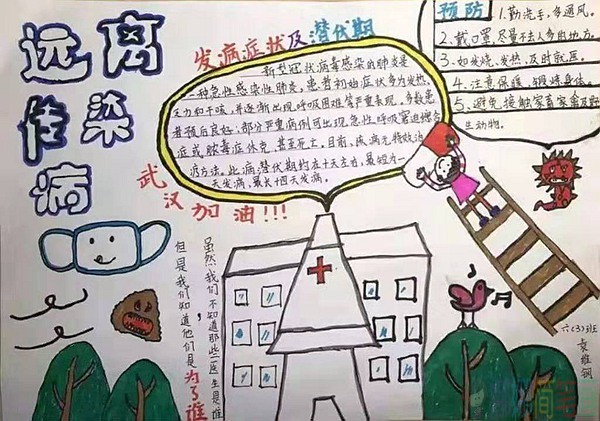 远离
传染
病
发病症状及潜伏期
新型冠状病毒感染的肺炎是
一种急性感染性肺炎，患者初始症状多为发热、
乏力和干咳，并逐渐出现呼吸困难等严重表现。多数患
者预后良好，部分严重病例可出现急性呼吸窘迫综合
症或脓毒症休克，甚至死亡，目前，疾病无特效治
疗方法。此病潜伏期约在十天左右，最短为一
天发病，最长十四天发病。
预防
1.勤洗手，多通风。
2.戴口罩，尽量不去人多的地方。
3.如发烧、发热，及时就医。
4.注意保暖、锻炼身体。
5、避免接触家畜家禽及野
生动物。
武汉加油!!!
虽然我们不知道那些医生是谁
，
但是我们知道他们是为了谁
六(3)班
袁雅钢